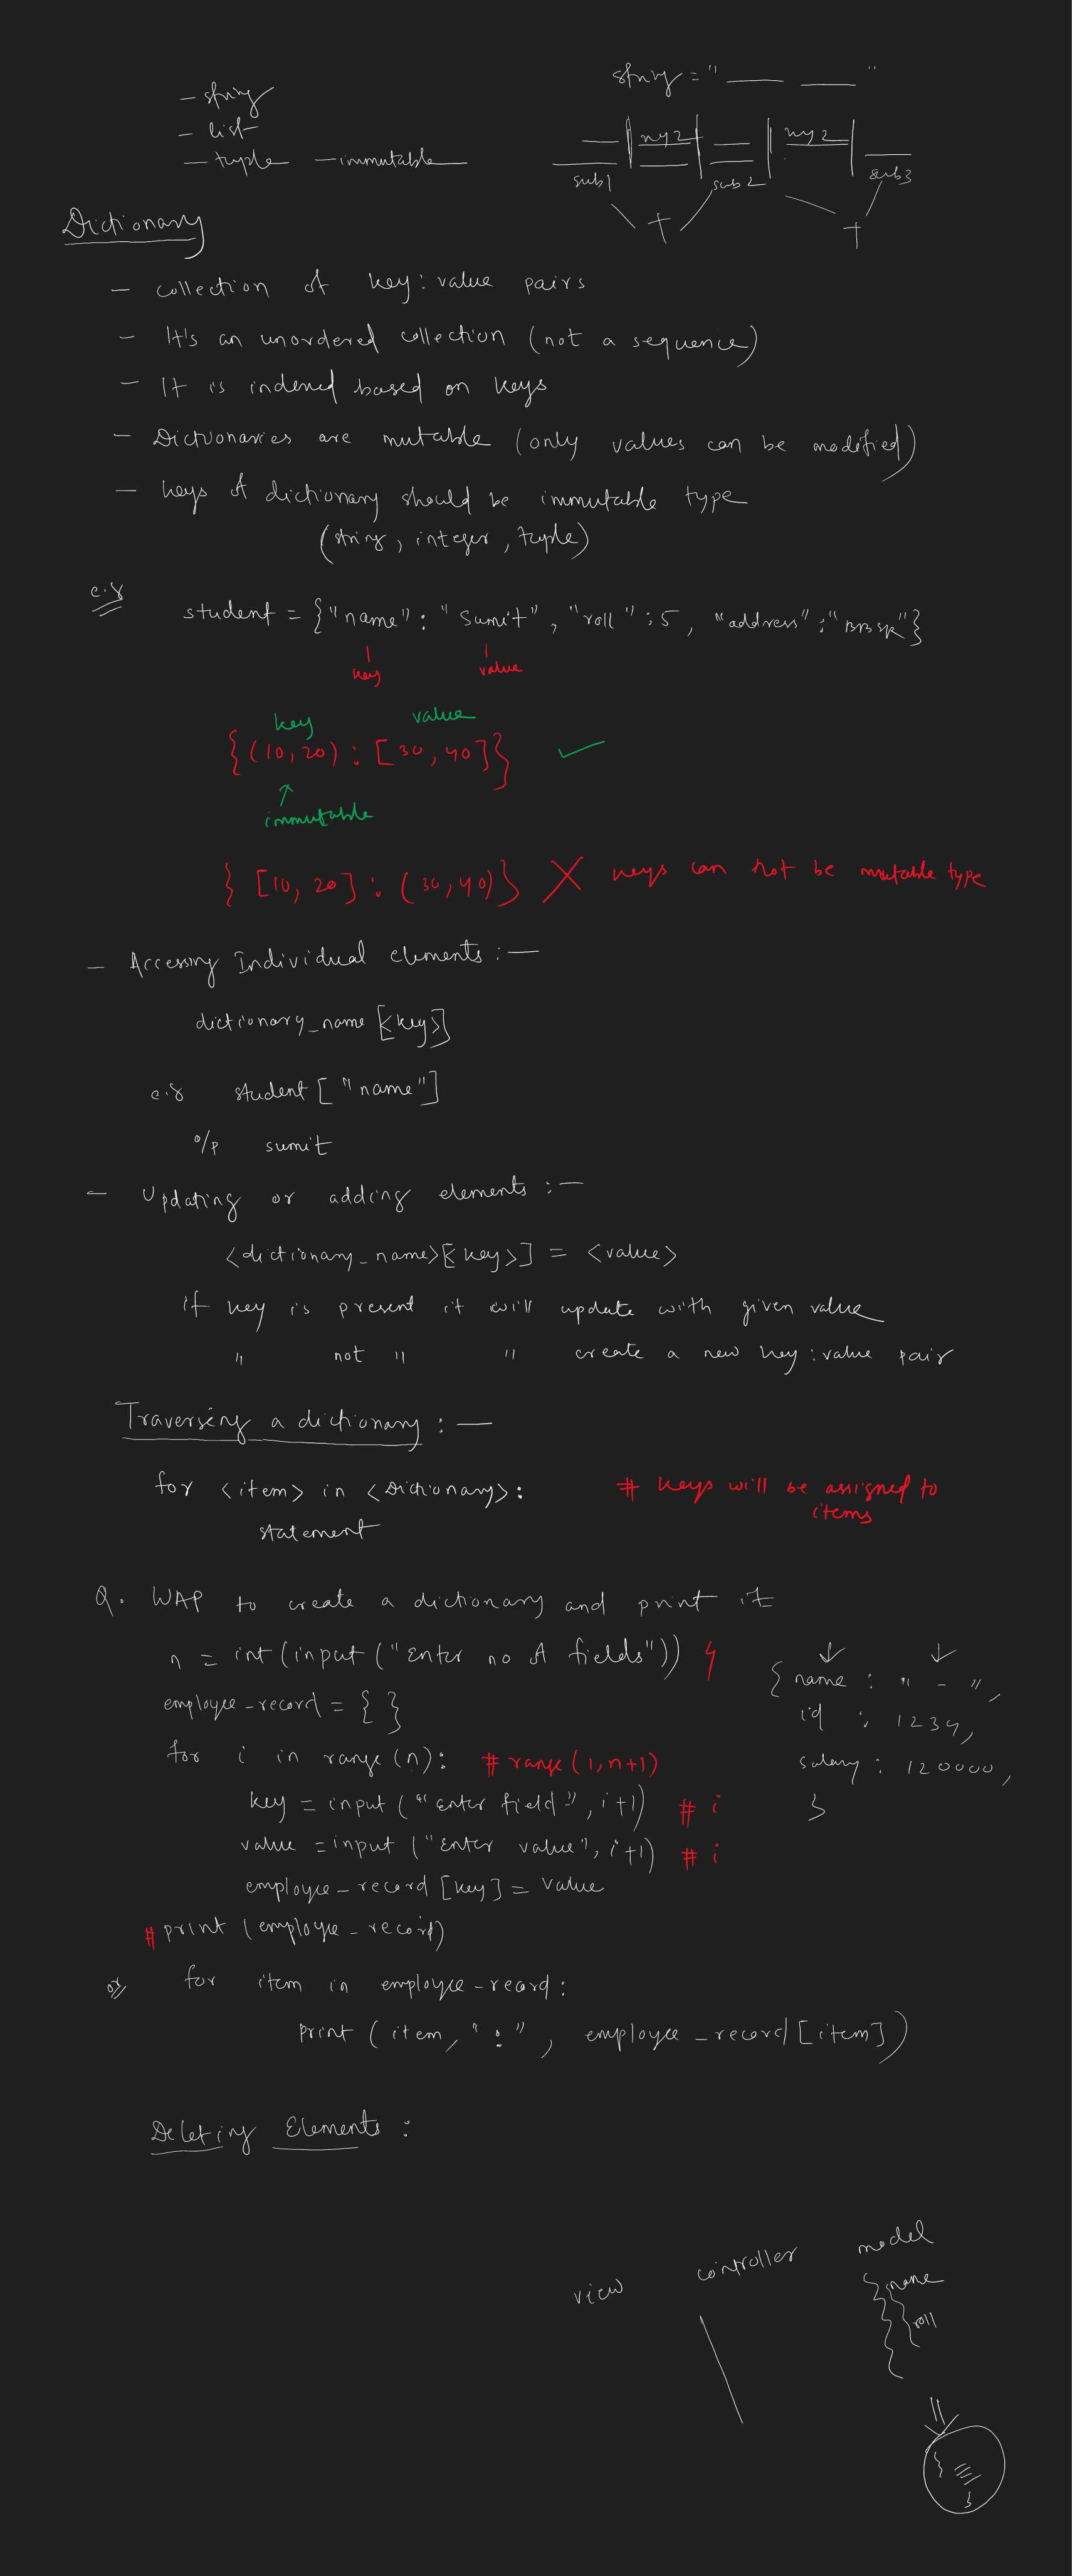 - string
- list
- tuple - immutable
string = " "
xyz xyz
sub1 sub2 sub3
+ +
Dictionary
- collection of key : value pairs
- It's an unordered collection (not a sequence)
- It is indexed based on keys
- Dictionaries are mutable (only values can be modified)
- keys of dictionary should be immutable type
(string, integer, tuple)
e.g
student = {"name" : "Sumit", "roll" : 5, "address" : "BBSR"}
key value
key value
{(10,20) : [30,40]} ✓
↑
immutable
{ [10,20] : (30,40)} X keys can not be mutable type
- Accessing Individual elements : —
dictionary_name [<key>]
e.g student ["name"]
o/p sumit
- Updating or adding elements : —
<dictionary_name>[<key>] = <value>
if key is present it will update with given value
" not " " create a new key : value pair
Traversing a dictionary : —
for <item> in <Dictionary> : # keys will be assigned to
items
statement
Q. WAP to create a dictionary and print it
n = int(input("Enter no of fields"))
employee_record = { }
for i in range(n): # range(1,n+1)
key = input("enter field", i+1) # i
value = input("Enter value", i+1) # i
employee_record [key] = value
# print (employee_record)
or for item in employee_record :
print (item, ":", employee_record [item])
{ name : " - ",
id : 1234,
salary : 120000,
}
Deleting Elements :
view controller model
{ name
roll